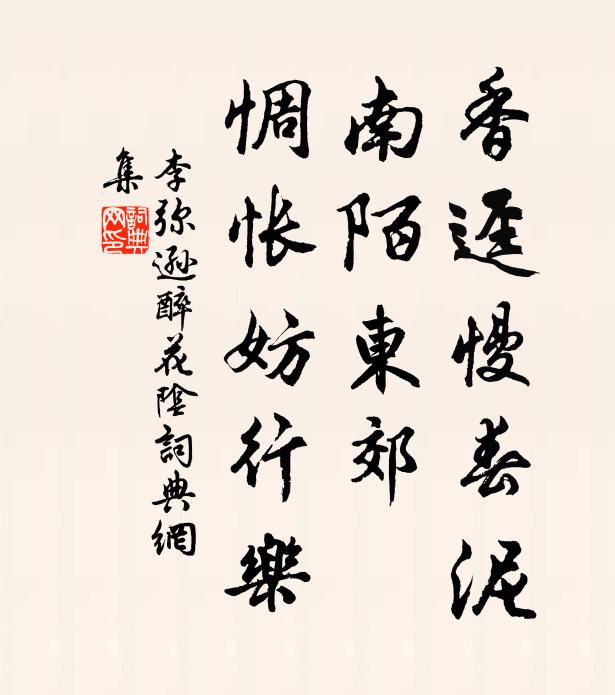 香逕慢春泥
南陌東郊
惆怅妨行樂
李弥遜醉花陰詞典網
集
詞典网印